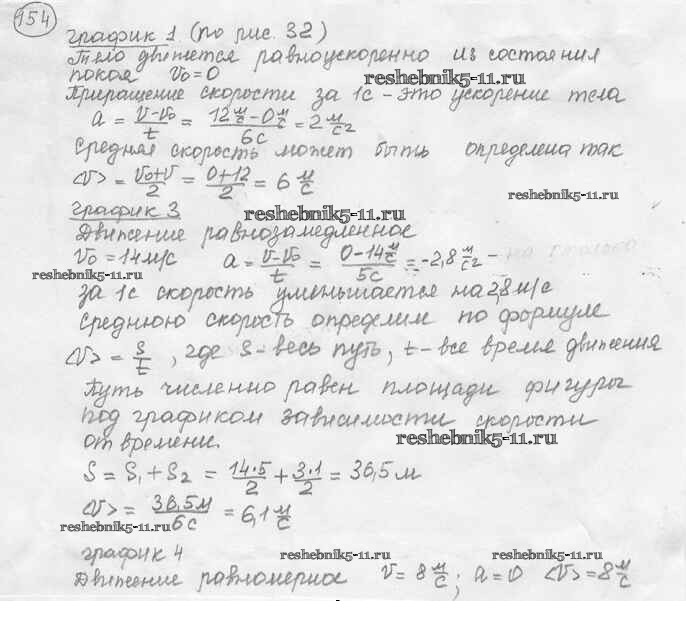 154
график 1 (по рис. 32)
Тело движется равноускоренно из состояния
покоя V₀=0
reshebnik5-11.ru
Приращение скорости за 1с - это ускорение тела
a = (V-V₀)/t = (12 м/с - 0 м/с)/6с = 2 м/с²
Средняя скорость может быть определена так
<V> = (V₀+V)/2 = (0+12)/2 = 6 м/с
reshebnik5-11.ru
график 3
reshebnik5-11.ru
Движение равнозамедленное
V₀ = 14м/с a = (V-V₀)/t = (0-14 м/с)/5с = -2,8 м/с² -
reshebnik5-11.ru
за 1с скорость уменьшается на 2,8 м/с
Среднюю скорость определим по формуле
<V> = S/t, где S - весь путь, t - все время движения
Путь численно равен площади фигуры
под графиком зависимости скорости
от времени.
reshebnik5-11.ru
S = S₁ + S₂ = (14·5)/2 + (3·1)/2 = 36,5 м
<V> = 36,5м/6с = 6,1 м/с
reshebnik5-11.ru
график 4
reshebnik5-11.ru
reshebnik5-11.ru
Движение равномерное V = 8 м/с; a = 0 <V> = 8 м/с